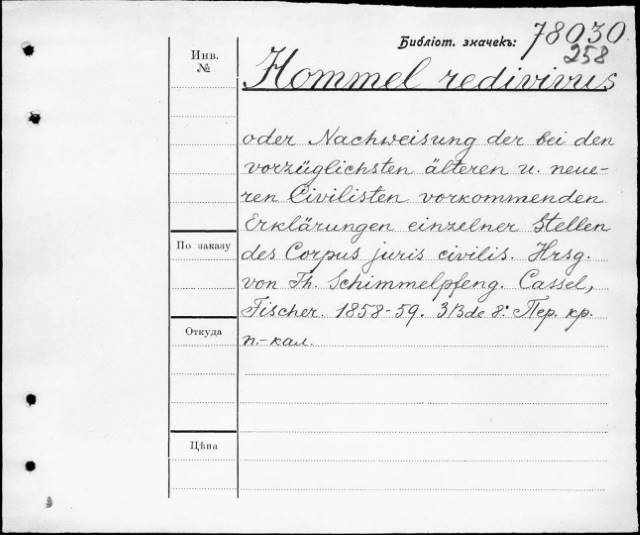 Библіот. значекъ: 78030
258
Инв. №
Hommel redivivus
oder Nachweisung der bei den
vorzüglichsten älteren u. neue-
ren Civilisten vorkommenden
Erklärungen einzelner Stellen
По заказу
des Corpus juris civilis. Hrsg.
von Th. Schimmelpfeng. Cassel,
Fischer. 1858-59. 3 Bde 8º. Пер. кр.
Откуда
п.-кал.
Цѣна